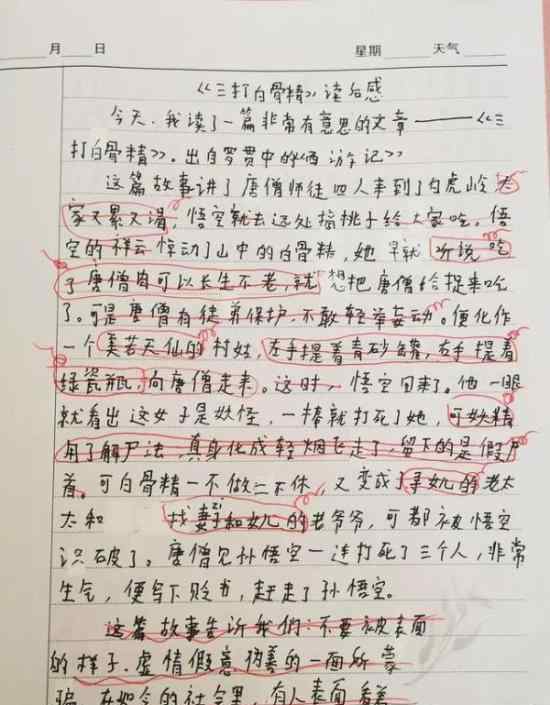 月 日 星期 天气
《三打白骨精》读后感
今天,我读了一篇非常有意思的文章——《三
打白骨精》。出自罗贯中的《西游记》
这篇故事讲了唐僧师徒四人来到了白虎岭 大
家又累又渴,悟空就去远处摘桃子给大家吃。悟
空的祥云惊动了山中的白骨精,她早就听说吃
了唐僧肉可以长生不老,就想把唐僧给捉来吃
了。可是唐僧有徒弟保护,不敢轻举妄动。便化作
一个美若天仙的村姑,左手提着青砂罐,右手提着
绿瓷瓶,向唐僧走来。这时,悟空回来了。他一眼
就看出这女子是妖怪,一棒就打死了她,可妖精
用了解尸法,真身化成轻烟飞走了,留下的是假尸
首。可白骨精一不做二不休,又变成了寻女儿的老太
太和 找妻子和女儿的老爷爷,可都被悟空
识破了。唐僧见孙悟空一连打死了三个人,非常
生气,便写下贬书,赶走了孙悟空。
这篇故事告诉我们:不要被表面
的样子.虚情假意.伪善的一面所蒙
骗,在如今的社会里,有人表面看美